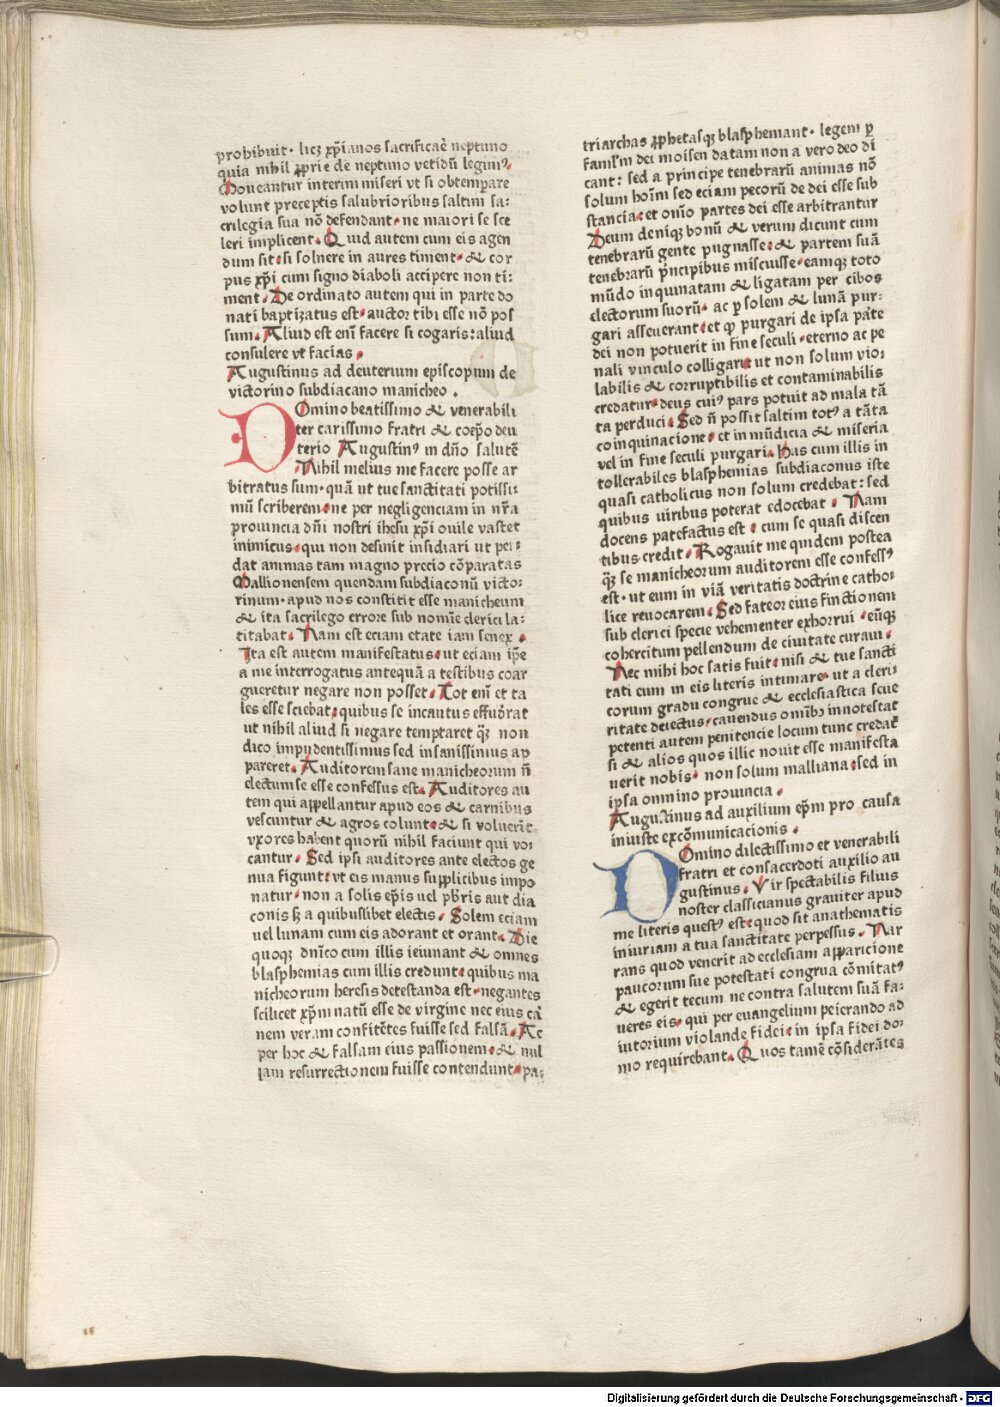 probibuit· licꝫ xp̄ianos sacrificaꝛ̄ neptuno
quia nihil ꝓprie de neptuno vetidū legim⁹.
Moueantur interim miseri vt si obtemꝑare
volunt preceptis salubrioribus saltim sa⸗
crilegia sua nō defendant· ne maiori se sce
leri implicent. Quid autem cum eis agen
dum sit· si solnere in aures timent· & cor
pus xp̄i cum signo diaboli accipere non ti⸗
ment. De ordinato autem qui in parte do
nati baptizatus est· auctoꝛ tibi esse nō pos
sum. Aliud est enī facere si cogaris: aliud
consulere vt facias.
Augustinus ad deuterium episcopum de
victorino subdiacano manicheo .
DOmino beatissimo & venerabili
ter carissimo fratri & coep̄o deu
terio Augustin⁹ in dn̄o salutē
Nihil melius me facere posse ar
bitratus sum· quā ut tue sanctitati potissi⸗
mū scriberem· ne per negligenciam in nr̄a
prouincia dn̄i nostri ihesu xp̄i ouile vastet
inimicus· qui non desinit insidiari ut per⸗
dat animas tam magno precio cōparatas
Mallionensem quendam subdiaconū victo⸗
rinum· apud nos constitit esse manicheum
& ita sacrilego errore sub nomīe clerici la⸗
titabat. Nam est eciam etate iam senex .
Ita est autem manifestatus· ut eciam ip̄e
a me interrogatus antequā a testibus coar
gueretur negare non posset. Tot enī et ta
les esse sciebat· quibus se incautus effuderat
ut nihil aliud si negare temptaret qꝫ non
dico impudentissimus sed insanissimus ap
pareret. Auditorem sane manicheorum n̄
electum se esse confessus est. Auditores au
tem qui appellantur apud eos & carnibus
vescuntur & agros colunt· & si voluerīt
vxores habent quorū nihil faciunt qui vo⸗
cantur. Sed ipsi auditores ante electos ge
nua figunt· vt eis manus supplicibus impo
natur· non a solis ep̄is uel pb̄ris aut dia
conis sꝫ a quibuslibet electis. Solem eciam
uel lunam cum eis adorant et orant. Die
quoqꝫ dn̄ico cum illis ieiunant & omnes
blasphemias cum illis credunt· quibus ma
nicheorum heresis detestanda est· negantes
scilicet xp̄m natū esse de virgine nec eius cā
nem veram confitētes fuisse sed falsā. Ac
per hoc & falsam eius passionem· & nul
lam resurrectionem fuisse contendunt· pa⸗
triarchas ꝓphetasqꝫ blasphemant· legem ꝑ
famlm̄ dei moisen datam non a vero deo di
cant: sed a principe tenebrarū animas nō
solum hoīm sed eciam pecorū de dei esse sub
stancia· et om̄o partes dei esse arbitrantur
Deum deniqꝫ bonū & verum dicunt cum
tenebrarū gente pugnasse· & partem suā
tenebrarū pn̄cipibus miscuisse· eamqꝫ toto
mūdo inquinatam & ligatam per cibos
electorum suorū· ac ꝑ solem & lunā pur⸗
gari asseuerant· et ꝙ purgari de ipsa pāte
dei non potuerit in fine seculi· eterno ac pe
nali vinculo colligari· ut non solum vio⸗
labilis & corruptibilis et contaminabilis
credatur· deus cui⁹ pars potuit ad mala tā
ta perduci. Sed n̄ possit saltim tot⁹ a tāta
coinquinacione· et in mūdicia & miseria
vel in fine seculi purgari. Has cum illis in
tollerabiles blasphemias subdiaconus iste
quasi catholicus non solum credebat: sed
quibus uiribus poterat edocebat . Nam
docens patefactus est . cum se quasi discen
tibus credit. Rogauit me quidem postea
qꝫ se manicheorum auditorem esse confess⁹
est· ut eum in viā veritatis doctrine catho⸗
lice reuocarem. Sed fateor eius finctionem
sub clerici specie vehementer exhorrui· eūqꝫ
cohercitum pellendum de ciuitate curaui.
Nec mihi hoc satis fuit· nisi & tue sancti
tati eum meis literis intimare· ut a cleri⸗
corum gradu congrue & ecclesiastica seue
ritate deiectus· cauendus omībꝫ innotescat
petenti autem penitencie locum tunc credat̄
si & alios quos illic nouit esse manifesta
uerit nobis· non solum malliana· sed in
ipsa omnino prouincia.
Augustinus ad auxilium ep̄m pro causa
iniuste excōmunicacionis.
DOmino dilectissimo et venerabili
fratri et consacerdoti auxilio au
gustinus. Vir spectabilis filius
noster classicianus grauiter apud
me literis quest⁹ est· quod sit anathematis
iniuriam a tua sanctitate perpessus. Nar
rans quod venerit ad ecclesiam apparicione
paucorum sue potestati congrua cōmitat⁹
& egerit tecum ne contra salutem suā fa⸗
ueres eis· qui per euangelium peierando ad
iutorium violande fidei· in ipsa fidei do⸗
mo requirebant. Quos tamē cōsiderātes
Digitalisierung gefördert durch die Deutsche Forschungsgemeinschaft - DFG